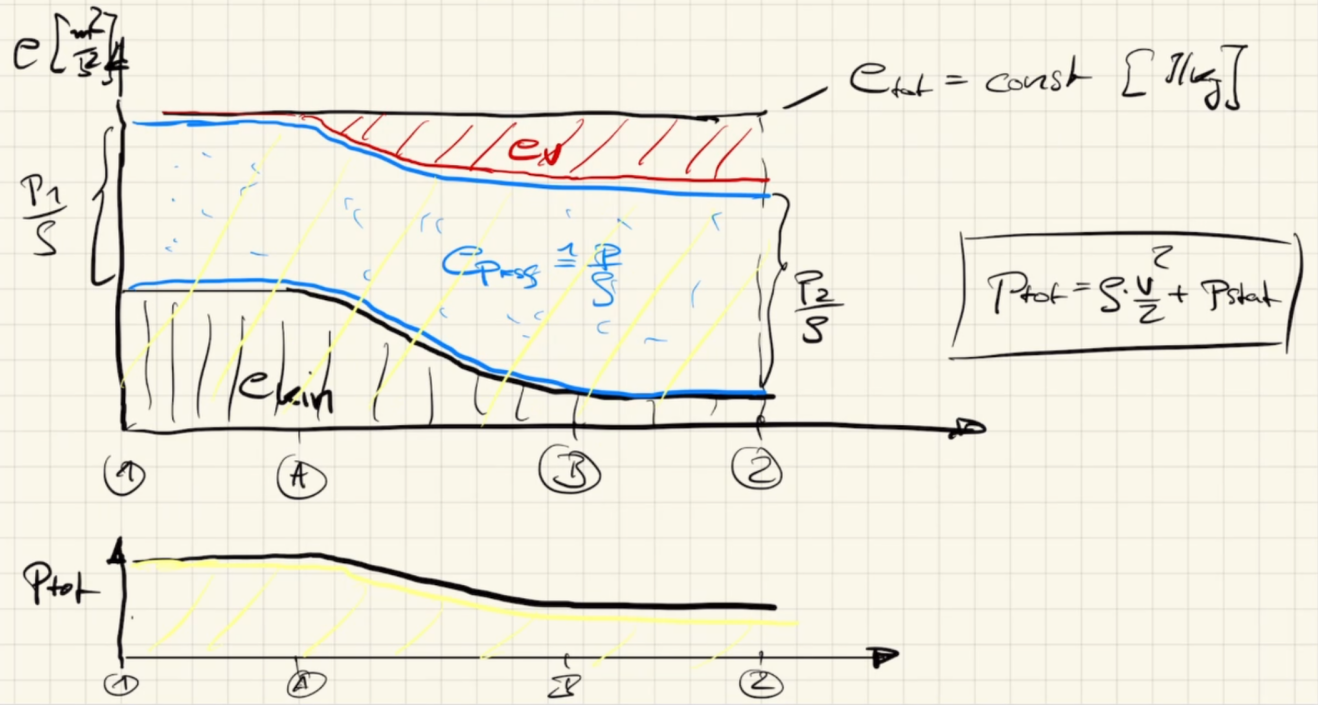 e [m²/s²]
e_tot = const [J/kg]
e_v
P1/ρ
e_press ≙ P/ρ
P2/ρ
P_tot = ρ · v²/2 + P_stat
e_kin
1 A B 2
P_tot
1 A B 2